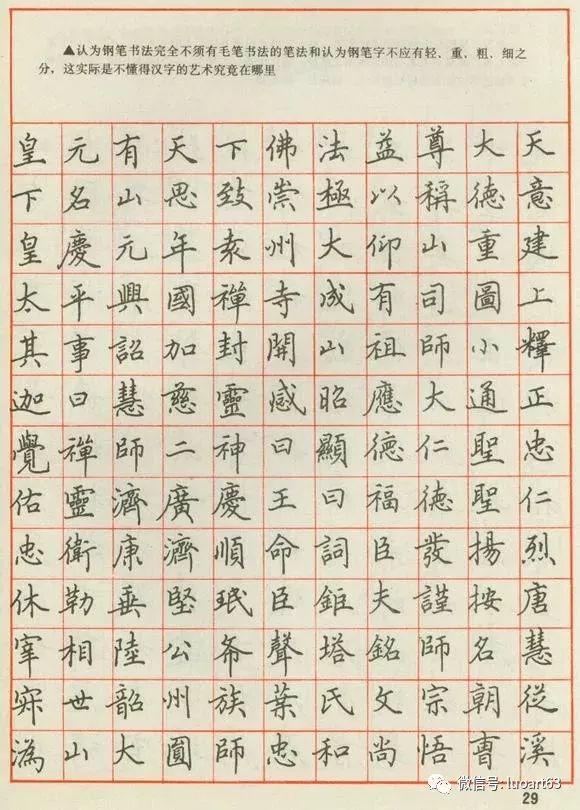 ▲认为钢笔书法完全不须有毛笔书法的笔法和认为钢笔字不应有轻、重、粗、细之
分，这实际是不懂得汉字的艺术究竟在哪里
皇元有天下佛法益尊大天
下名山思致崇極以稱德意
皇慶元年袁州大仰山重建
太平興國禪寺成有司圖上
其事詔加封開山祖師小釋
迦曰慧慈靈感昭應大通正
覺禪師二神曰顯德仁聖忠
佑靈濟廣慶王曰福德聖仁
忠衛康濟順命詞臣發揚烈
休勒垂堅珉臣鉅夫謹按唐
宰相陸公希聲塔銘師名慧
寂世韶州族葉氏文宗朝從
溈山大圓師忠和尚悟曹溪
微信号: luoart63
29